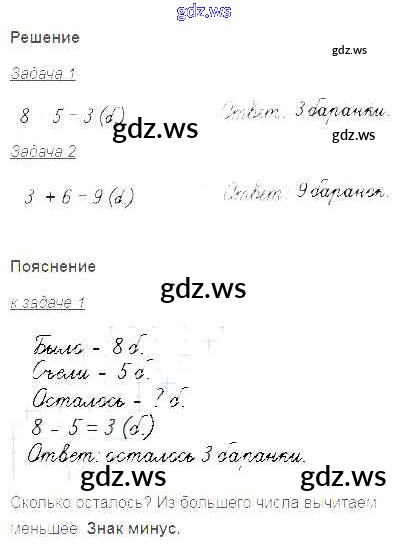 gdz.ws
Решение
gdz.ws
Задача 1
8 5 - 3 (б.) Ответ: 3 баранки.
gdz.ws gdz.ws
Задача 2
3 + 6 - 9 (б.) Ответ: 9 баранок.
Пояснение
gdz.ws
к задаче 1
Было - 8 б.
Съели - 5 б.
Осталось - ? б.
8 - 5 = 3 (б.)
Ответ: осталось 3 баранки.
gdz.ws gdz.ws
Сколько осталось? Из большего числа вычитаем
меньшее. Знак минус.
gdz.ws